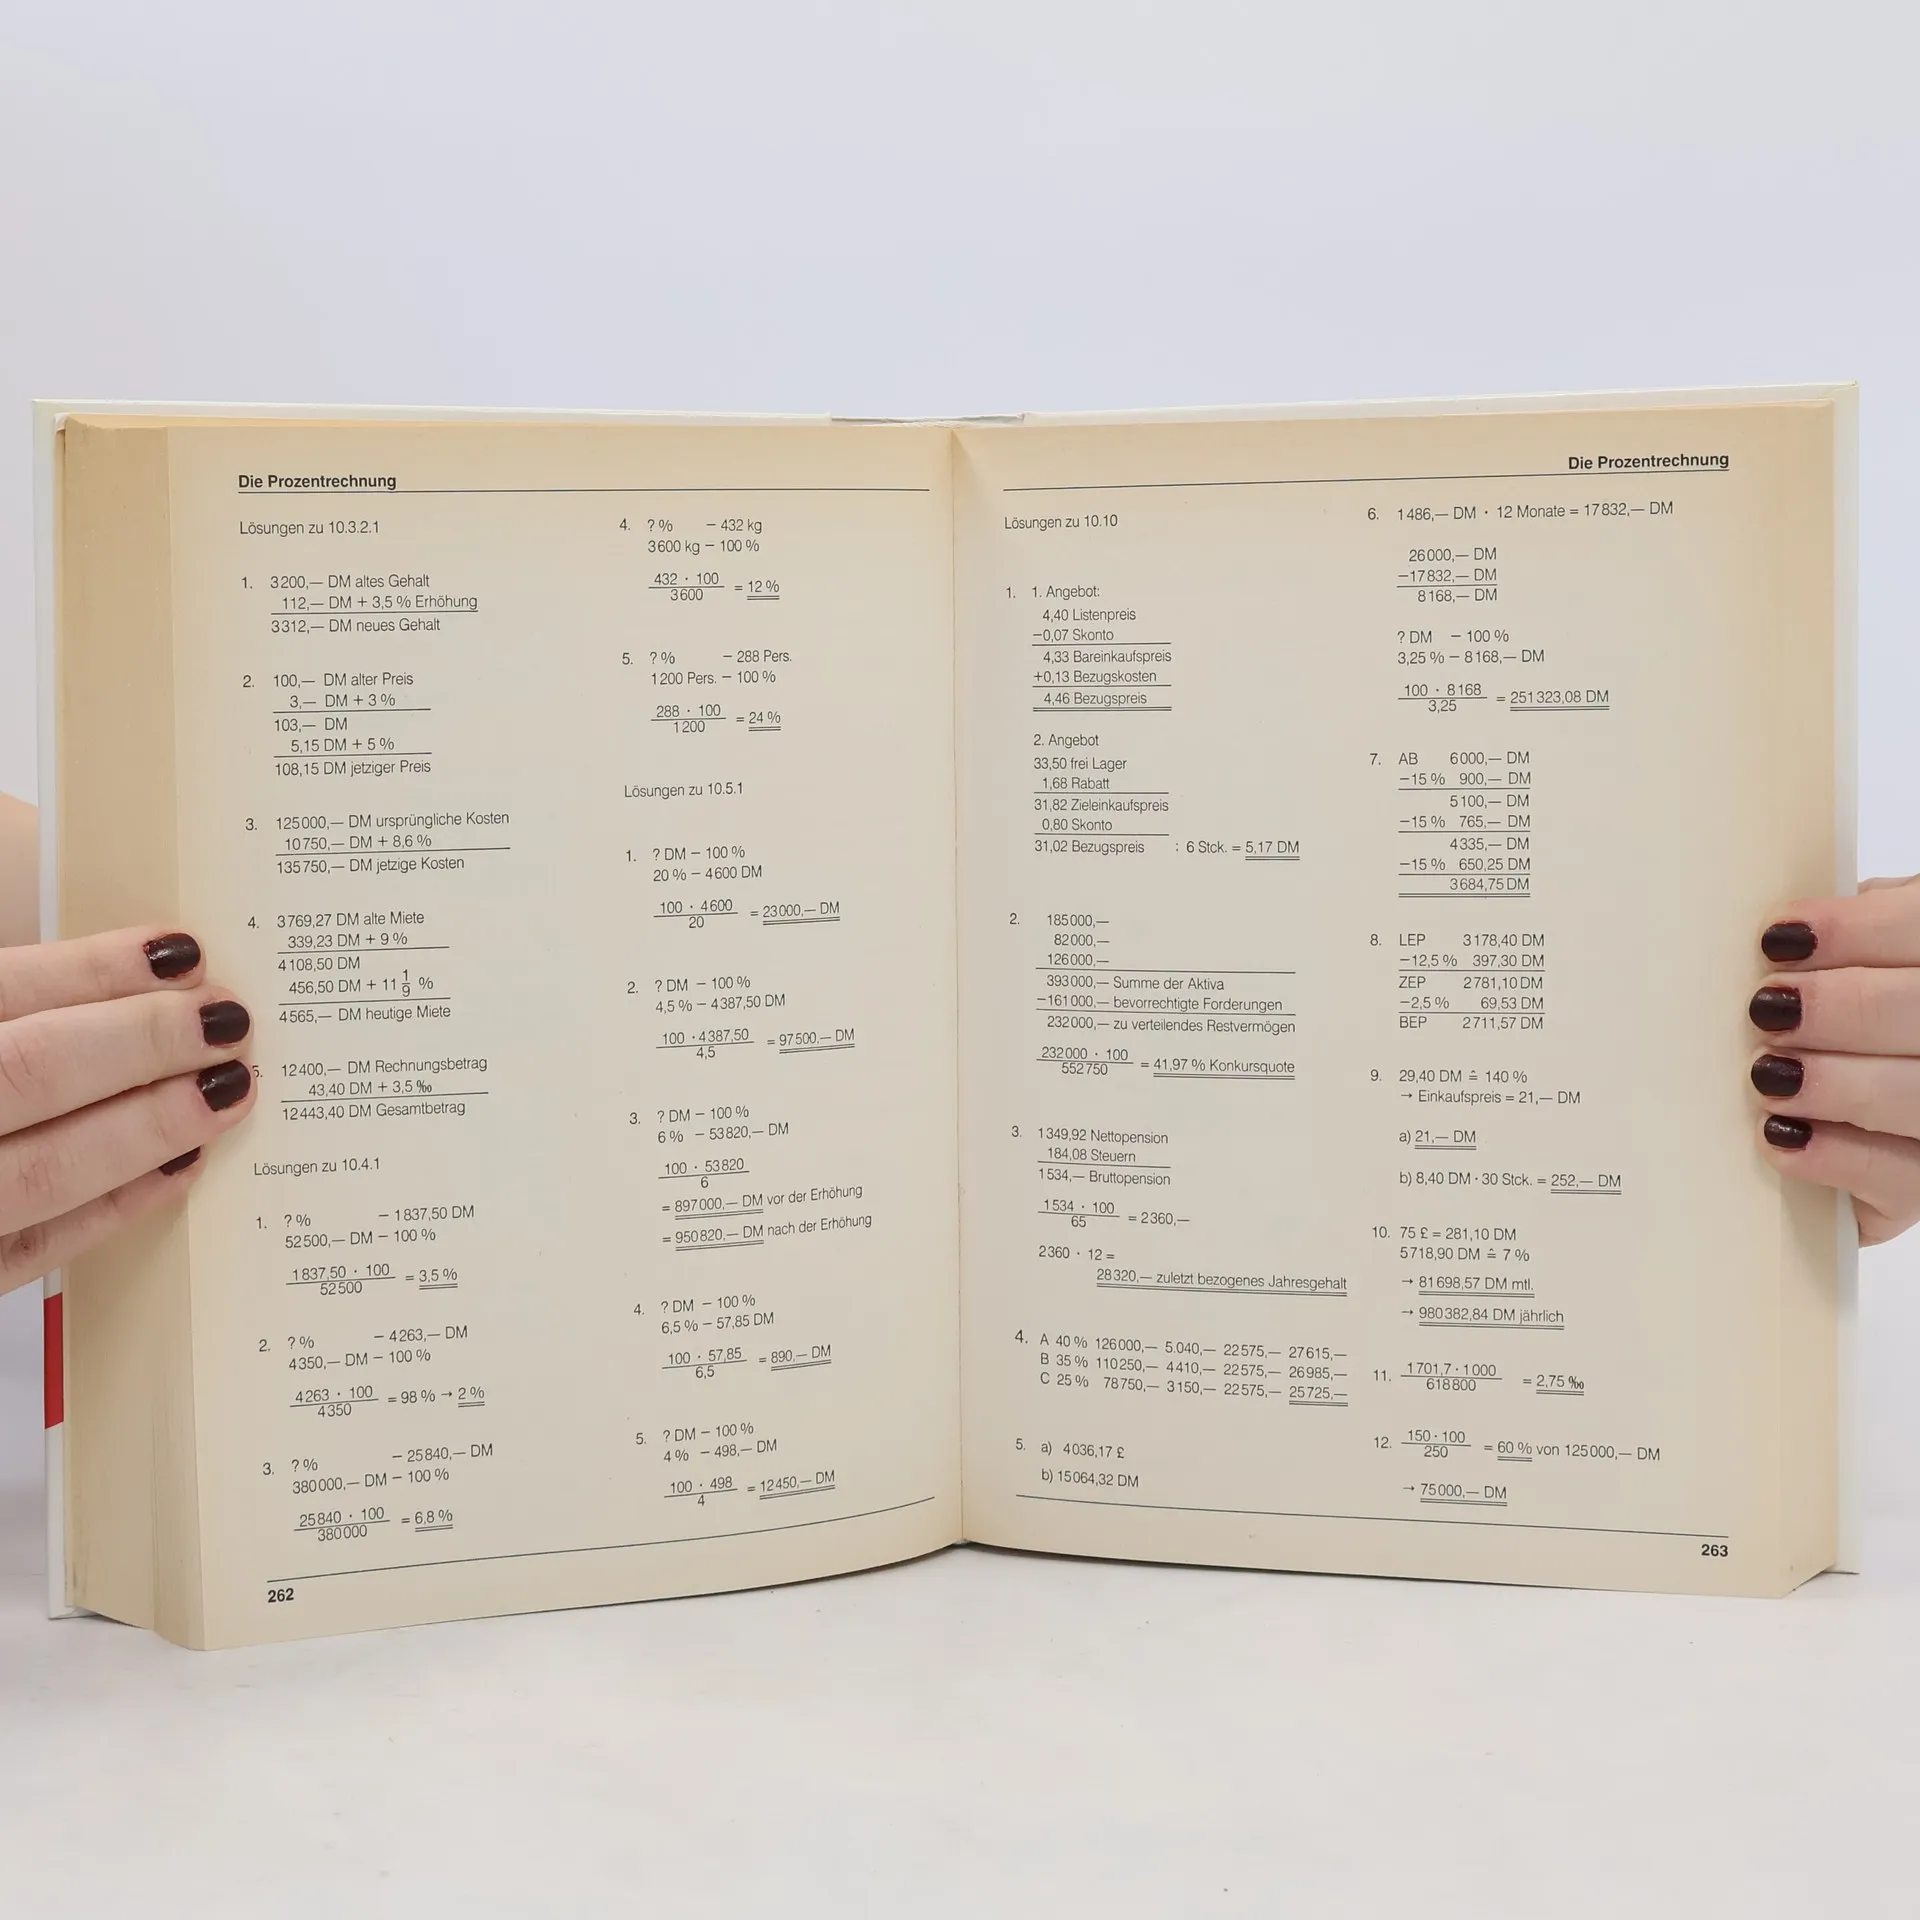 Die Prozentrechnung
Lösungen zu 10.3.2.1
1. 3200,— DM altes Gehalt
112,— DM + 3,5 % Erhöhung
3312,— DM neues Gehalt
2. 100,— DM alter Preis
3,— DM + 3 %
103,— DM
5,15 DM + 5 %
108,15 DM jetziger Preis
3. 125000,— DM ursprüngliche Kosten
10750,— DM + 8,6 %
135750,— DM jetzige Kosten
4. 3769,27 DM alte Miete
339,23 DM + 9 %
4108,50 DM
456,50 DM + 11 1/9 %
4565,— DM heutige Miete
5. 12400,— DM Rechnungsbetrag
43,40 DM + 3,5 ‰
12443,40 DM Gesamtbetrag
Lösungen zu 10.4.1
1. ? % – 1837,50 DM
52500,— DM – 100 %
1837,50 · 100
52500
= 3,5 %
2. ? % – 4263,— DM
4350,— DM – 100 %
4263 · 100
4350
= 98 % → 2 %
3. ? % – 25840,— DM
380000,— DM – 100 %
25840 · 100
380000
= 6,8 %
4. ? % – 432 kg
3600 kg – 100 %
432 · 100
3600
= 12 %
5. ? % – 288 Pers.
1200 Pers. – 100 %
288 · 100
1200
= 24 %
Lösungen zu 10.5.1
1. ? DM – 100 %
20 % – 4600 DM
100 · 4600
20
= 23000,— DM
2. ? DM – 100 %
4,5 % – 4387,50 DM
100 · 4387,50
4,5
= 97500,— DM
3. ? DM – 100 %
6 % – 53820,— DM
100 · 53820
6
= 897000,— DM vor der Erhöhung
= 950820,— DM nach der Erhöhung
4. ? DM – 100 %
6,5 % – 57,85 DM
100 · 57,85
6,5
= 890,— DM
5. ? DM – 100 %
4 % – 498,— DM
100 · 498
4
= 12450,— DM
262
Die Prozentrechnung
Lösungen zu 10.10
1. 1. Angebot:
4,40 Listenpreis
–0,07 Skonto
4,33 Bareinkaufspreis
+0,13 Bezugskosten
4,46 Bezugspreis
2. Angebot
33,50 frei Lager
1,68 Rabatt
31,82 Zieleinkaufspreis
0,80 Skonto
31,02 Bezugspreis : 6 Stck. = 5,17 DM
2. 185000,—
82000,—
126000,—
393000,— Summe der Aktiva
–161000,— bevorrechtigte Forderungen
232000,— zu verteilendes Restvermögen
232000 · 100
552750
= 41,97 % Konkursquote
3. 1349,92 Nettopension
184,08 Steuern
1534,— Bruttopension
1534 · 100
65
= 2360,—
2360 · 12 =
28320,— zuletzt bezogenes Jahresgehalt
4. A 40 % 126000,— 5.040,— 22575,— 27615,—
B 35 % 110250,— 4410,— 22575,— 26985,—
C 25 % 78750,— 3150,— 22575,— 25725,—
5. a) 4036,17 £
b) 15064,32 DM
6. 1486,— DM · 12 Monate = 17832,— DM
26000,— DM
–17832,— DM
8168,— DM
? DM – 100 %
3,25 % – 8168,— DM
100 · 8168
3,25
= 251323,08 DM
7. AB 6000,— DM
–15 % 900,— DM
5100,— DM
–15 % 765,— DM
4335,— DM
–15 % 650,25 DM
3684,75 DM
8. LEP 3178,40 DM
–12,5 % 397,30 DM
ZEP 2781,10 DM
–2,5 % 69,53 DM
BEP 2711,57 DM
9. 29,40 DM ≙ 140 %
→ Einkaufspreis = 21,— DM
a) 21,— DM
b) 8,40 DM · 30 Stck. = 252,— DM
10. 75 £ = 281,10 DM
5718,90 DM ≙ 7 %
→ 81698,57 DM mtl.
→ 980382,84 DM jährlich
11. 1701,7 · 1000
618800
= 2,75 ‰
12. 150 · 100
250
= 60 % von 125000,— DM
→ 75000,— DM
263